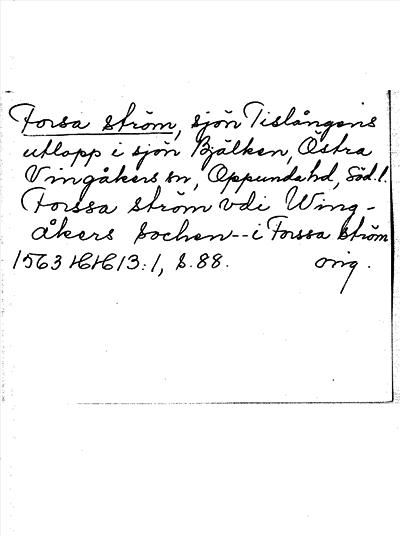 Forsa ström, sjön Tislångens
utlopp i sjön Bjälken, Östra
Vingåkers sn, Oppunda hd, Söd.l.
Forssa ström vdi Wing-
åkers Sochen--i Forssa ström
1563 HH 13:1, S. 88. orig.